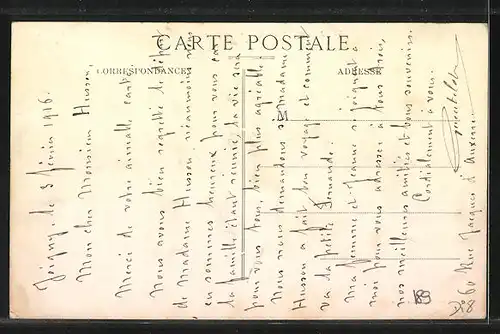 CARTE POSTALE
CORRESPONDANCE
ADRESSE
Joigny, le 3 février 1916.
Mon cher Monsieur Husson,
Merci de votre aimable carte
Nous avons bien regretté le départ
de Madame Husson, néanmoins nous
en sommes heureux pour vous car
la famille étant réunie, la vie sera
pour vous tous, bien plus agréable
Nous nous demandons si Madame
Husson a fait bon voyage et comment
va la petite Fernande.
Ma femme et Jeanne se joignent à
moi pour vous adresser à tous trois,
nos meilleures amitiés et bons souvenirs.
Cordialement à vous.
60 Rue Jacques d'Auxerre